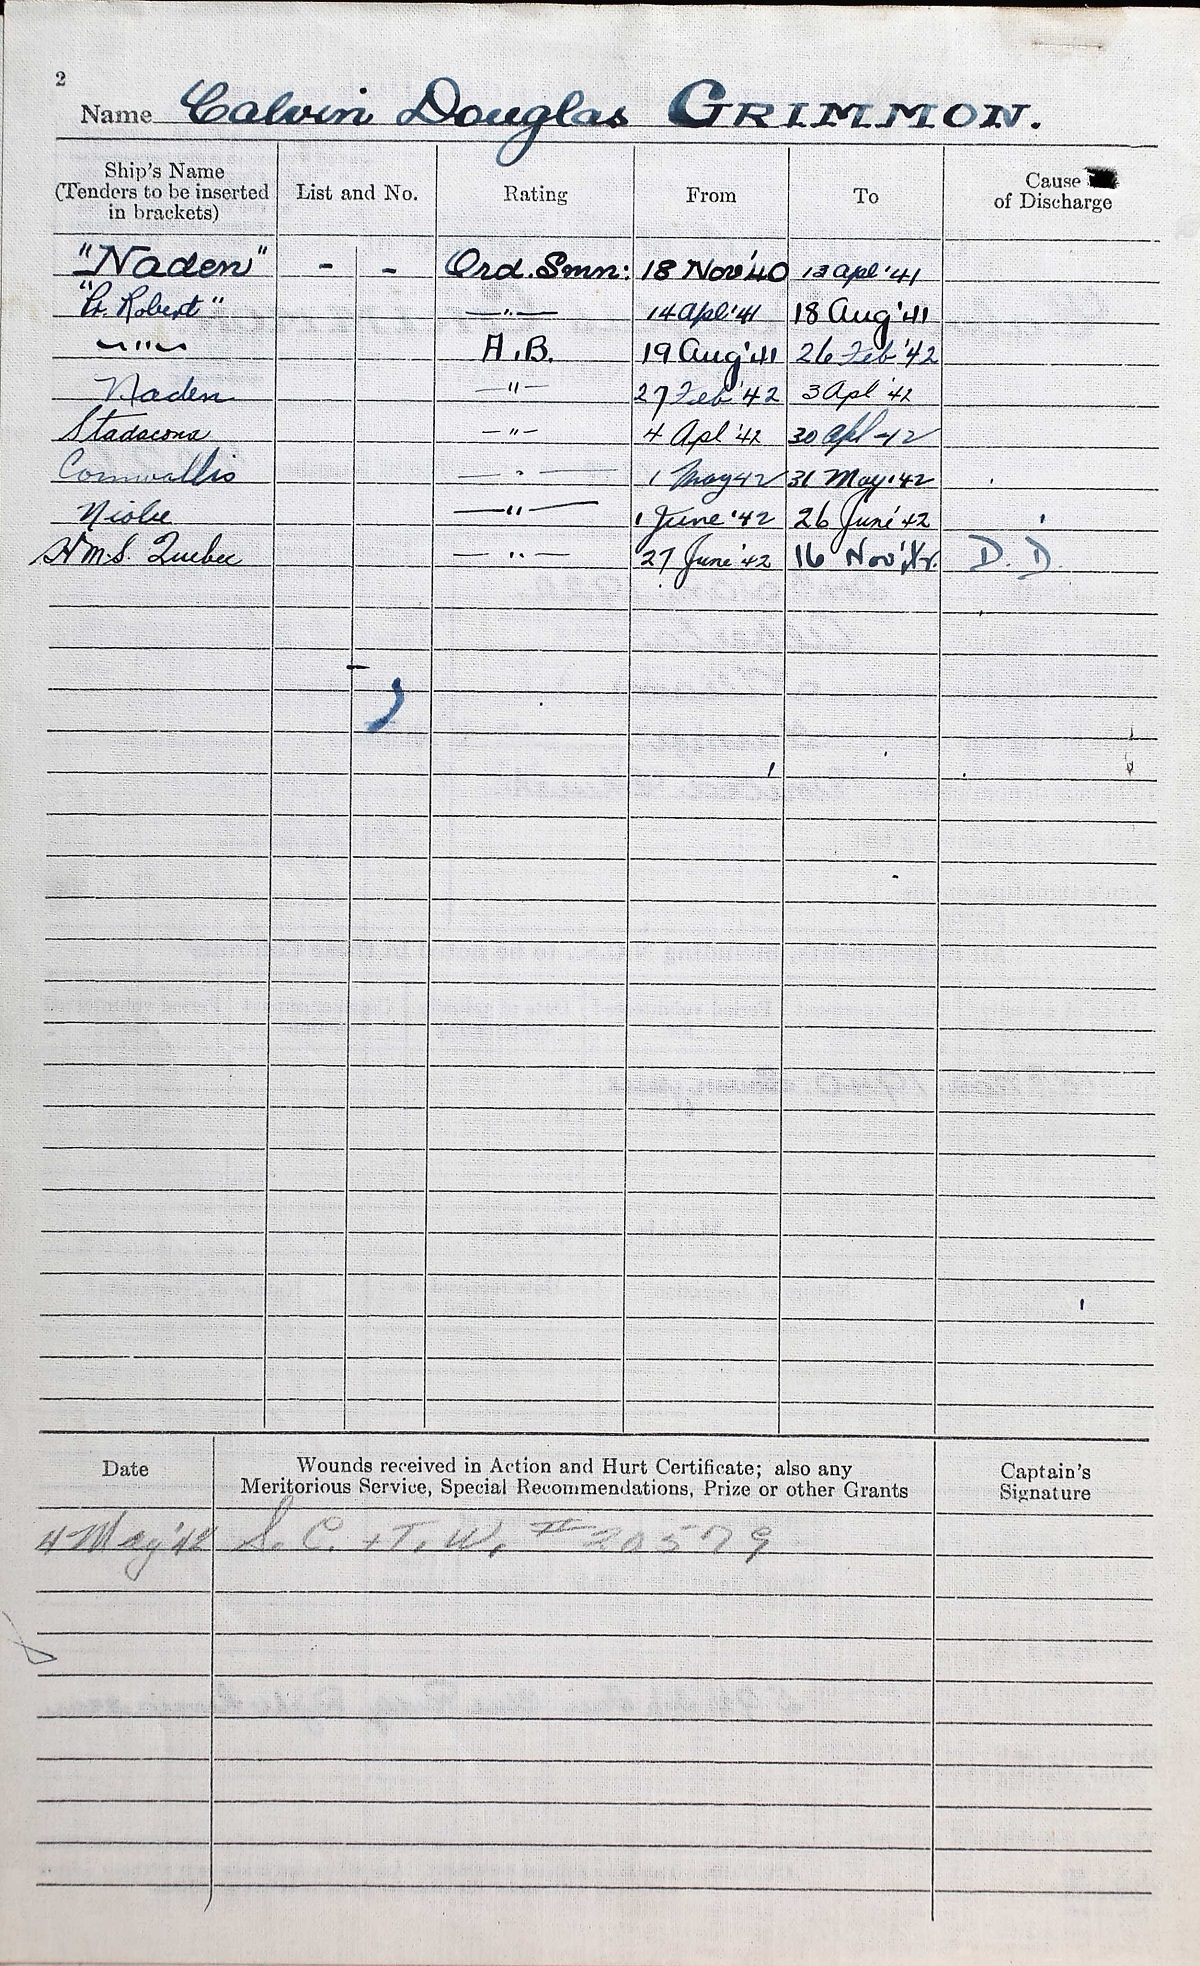 2
Name Calvin Douglas GRIMMON.
Ship's Name (Tenders to be inserted in brackets) List and No. Rating From To Cause of Discharge
"Naden" - - Ord. Smn: 18 Nov '40 13 Apl '41
"Pr. Robert" —"— 14 Apl '41 18 Aug '41
—"— A.B. 19 Aug '41 26 Feb '42
Naden —"— 27 Feb '42 3 Apl '42
Stadacona —"— 4 Apl '42 30 Apl 42
Cornwallis —"— 1 May 42 31 May '42
Niobe —"— 1 June '42 26 June '42
H.M.S. Quebec —"— 27 June '42 16 Nov '42. D.D.
Date Wounds received in Action and Hurt Certificate; also any Meritorious Service, Special Recommendations, Prize or other Grants Captain's Signature
4 May '42 S.C. + T.W. #20579